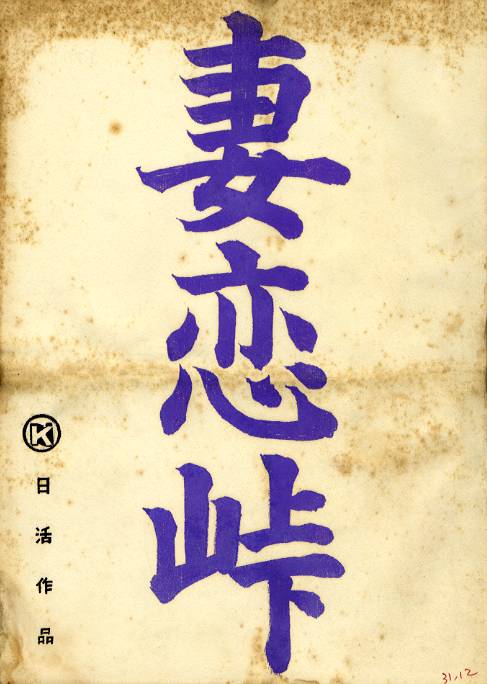 妻恋峠
K
日活作品
31.12